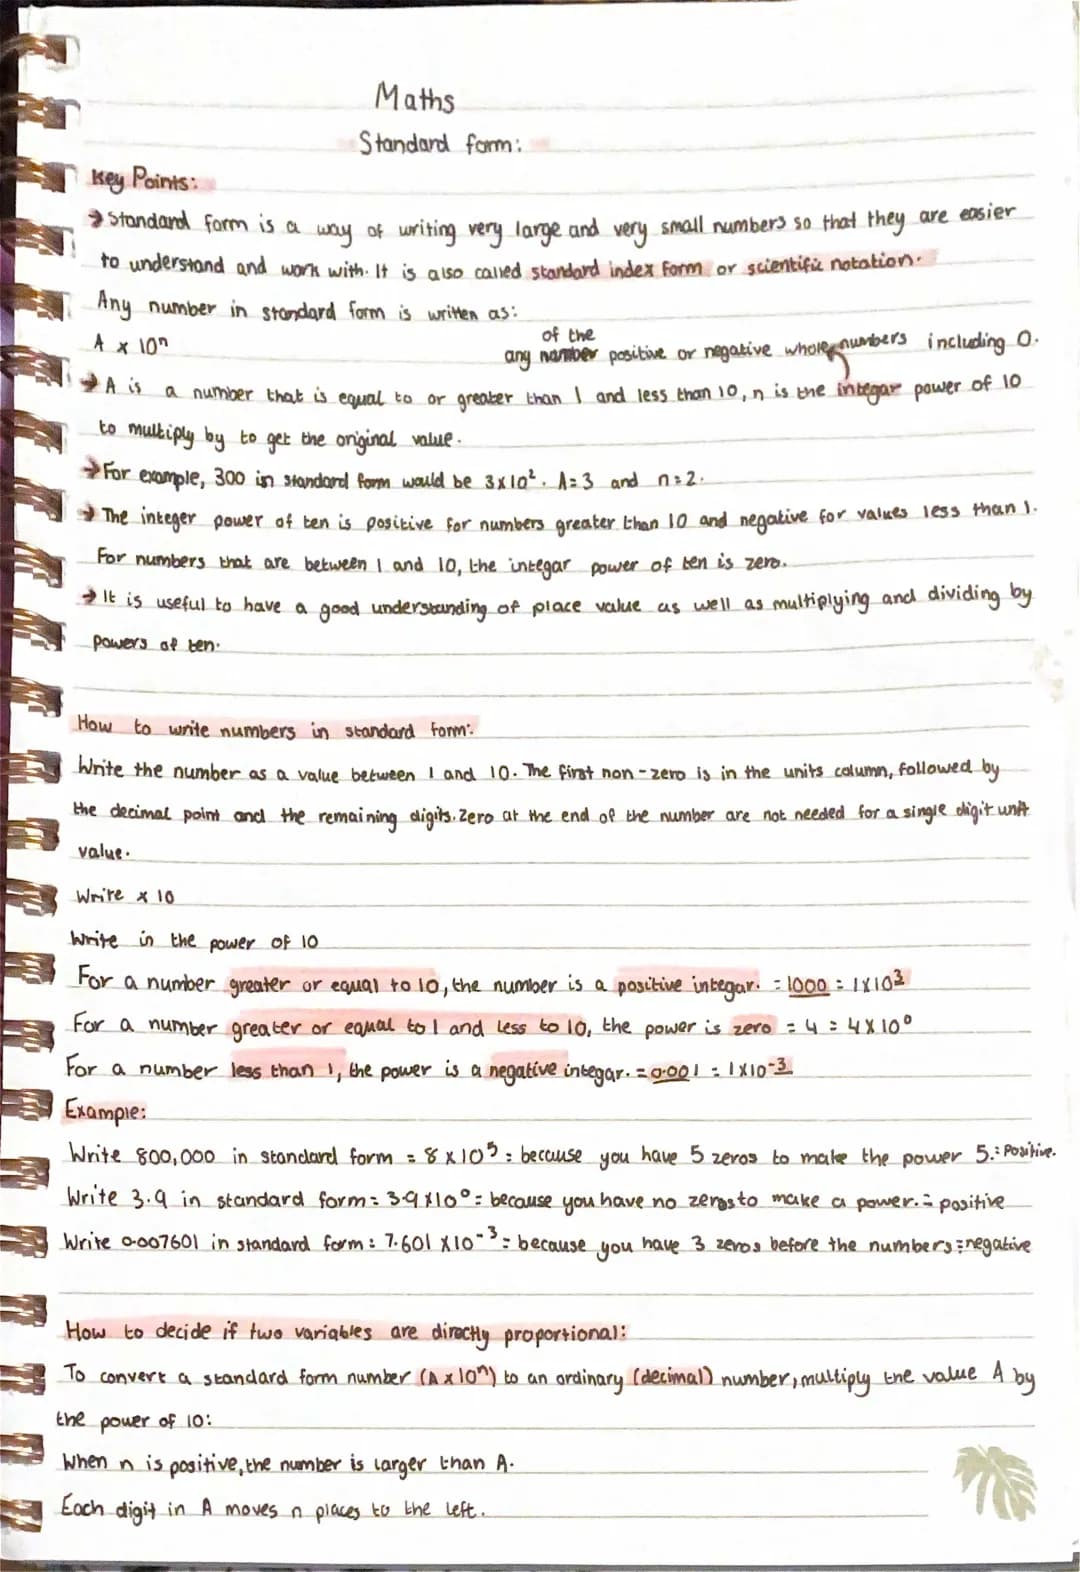 Maths
Standard form:
Key Points:
→ Standard form is a way of writing very large and very small numbers so that they are easier
to understand and work with. It is also called standard index form or scientific notation.
Any number in standard form is written as:
A x 10ⁿ
of the
any number positive or negative whole numbers including 0.
→ A is a number that is equal to or greater than 1 and less than 10, n is the integar power of 10
to multiply by to get the original value.
→ For example, 300 in standard form would be 3x10². A=3 and n=2.
→ The integer power of ten is positive for numbers greater than 10 and negative for values less than 1.
For numbers that are between 1 and 10, the integar power of ten is zero.
→ It is useful to have a good understanding of place value as well as multiplying and dividing by
powers of ten.
How to write numbers in standard form:
Write the number as a value between 1 and 10. The first non-zero is in the units column, followed by
the decimal point and the remaining digits. Zero at the end of the number are not needed for a single digit unit
value.
Write x 10
Write in the power of 10
For a number greater or equal to 10, the number is a positive integar. = 1000 = 1x10³
For a number greater or equal to 1 and less to 10, the power is zero = 4 = 4x10⁰
For a number less than 1, the power is a negative integar. = 0.001 = 1x10⁻³
Example:
Write 800,000 in standard form = 8 x 10⁵ = because you have 5 zeros to make the power 5.= Positive.
Write 3.9 in standard form = 3.9x10⁰ = because you have no zeros to make a power. = positive
Write 0.007601 in standard form = 7.601 x10⁻³ = because you have 3 zeros before the numbers = negative
How to decide if two variables are directly proportional:
To convert a standard form number (A x 10ⁿ) to an ordinary (decimal) number, multiply the value A by
the power of 10:
When n is positive, the number is larger than A.
Each digit in A moves n places to the left.